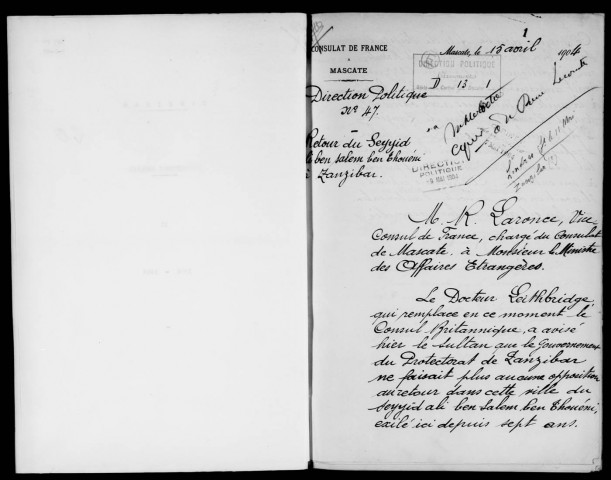 1
CONSULAT DE FRANCE
MASCATE
Mascate, le 15 avril 1904
DIRECTION POLITIQUE
D 13 1
Direction Politique
Nº 47.
Retour du Seyyid
ali ben Salem ben Thouéni
à Zanzibar.
DIRECTION
POLITIQUE
M. R. Laronce, Vice-
Consul de France, chargé du Consulat
de Mascate, à Monsieur le Ministre
des Affaires Etrangères.
Le Docteur Leithbridge,
qui remplace en ce moment le
Consul Britannique, a avisé
hier le Sultan que le Gouvernement
du Protectorat de Zanzibar
ne faisait plus aucune opposition
au retour dans cette ville du
Seyyid ali ben Salem ben Thouéni,
exilé ici depuis sept ans.